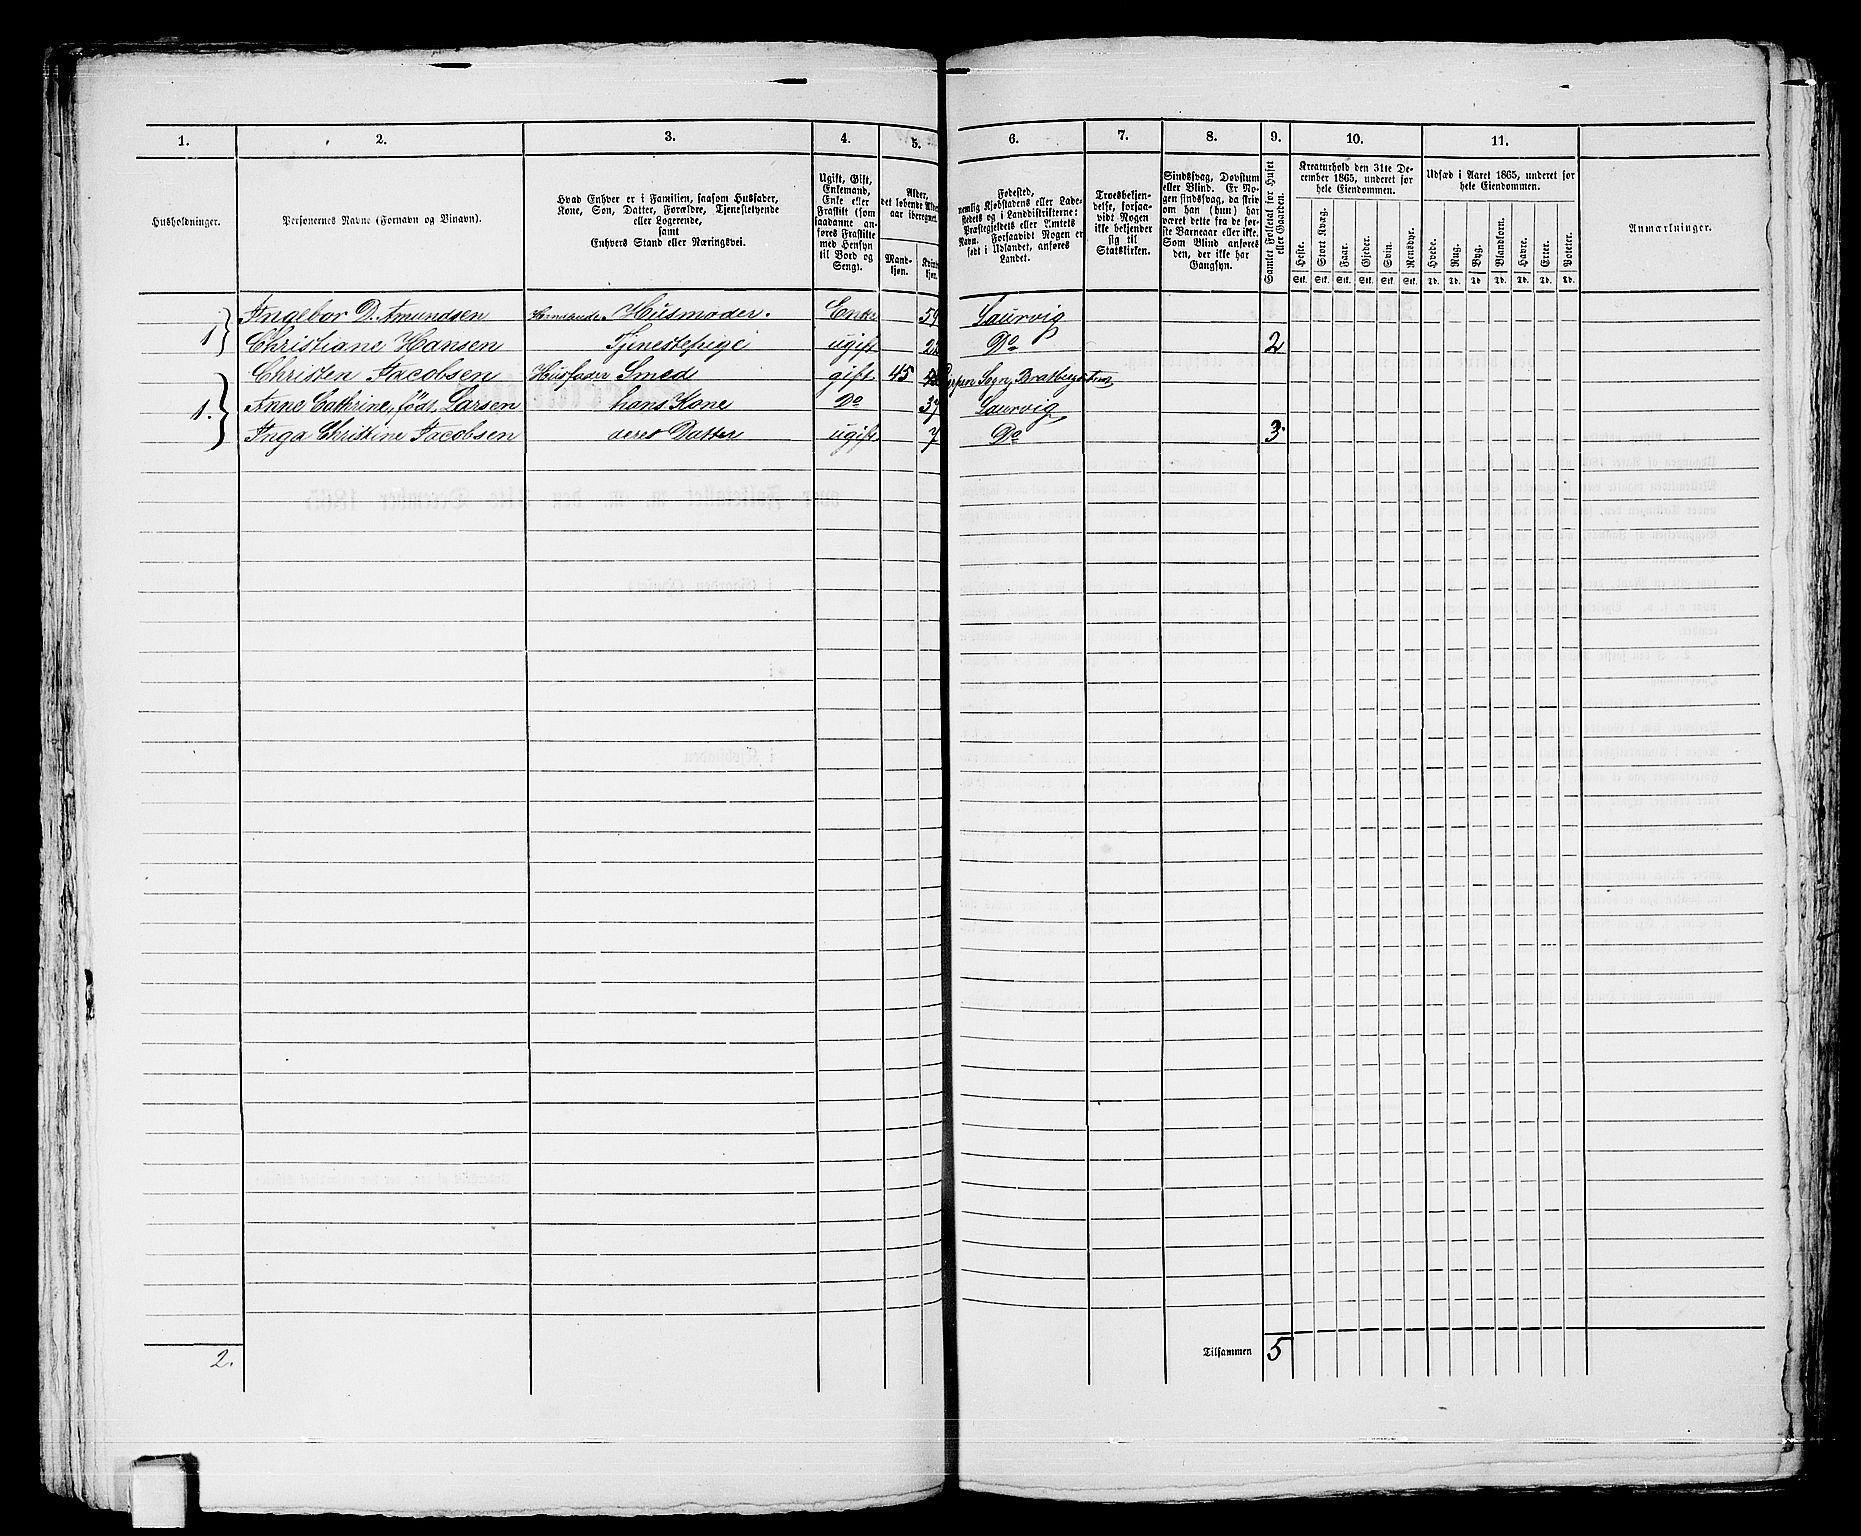 1. 2. 3. 4. 5. 6. 7. 8. 9. 10. 11.
Husholdninger.
Personernes Navne (Fornavn og Binavn).
Hvad Enhver er i Familien, saasom Husfader,
Kone, Søn, Datter, Forældre, Tjenestetyende
eller Logerende,
samt
Enhvers Stand eller Næringsvei.
Ugift, Gift,
Enkemand,
Enke eller
Fraskilt (som
saadanne an-
føres Fraskilte
med Hensyn
til Bord og
Seng).
Alder,
det løbende Alders-
aar iberegnet.
Mand-
kjøn.
Kvin
kjøn.
Fødested,
nemlig Kjøbstadens eller Lade-
stedets og i Landdistrikterne:
Præstegjeldets eller Amtets
Navn. Forsaavidt Nogen er
født i Udlandet, anføres
Landet.
Troesbekjen-
delse, forsaa-
vidt Nogen
ikke bekjender
sig til
Statskirken.
Sindssvag, Døvstum
eller Blind. Er No-
gen sindssvag, da skriv
om han (hun) har
været dette fra de før-
ste Barneaar eller ikke.
Som Blind anføres
den, der ikke har
Gangsyn.
Samlet Folketal for Huset
eller Gaarden.
Kreaturhold den 31te De-
cember 1865, underet for
hele Eiendommen.
Heste. Stort Kvæg. Faar. Gjeder. Svin. Rensdyr.
Stk. Stk. Stk. Stk. Stk. Stk.
Udsæd i Aaret 1865, underet for
hele Eiendommen.
Hvede. Rug. Byg. Blandkorn. Havre. Erter. Poteter.
Td. Td. Td. Td. Td. Td. Td.
Anmærkninger.
Ingebor D. Amundsen Husmoder. Enke 59 Laurvig
1 Christiane Hansen Tjenestepige ugift 22 Do 2
Christen Jacobsen Husfader Smed gift 45 Sogn,
1. Anne Cathrine, født Larsen hans Kone Do 37 Laurvig
Inga Christine Jacobsen deres Datter ugift 7 Do 3
2. Tilsammen 5